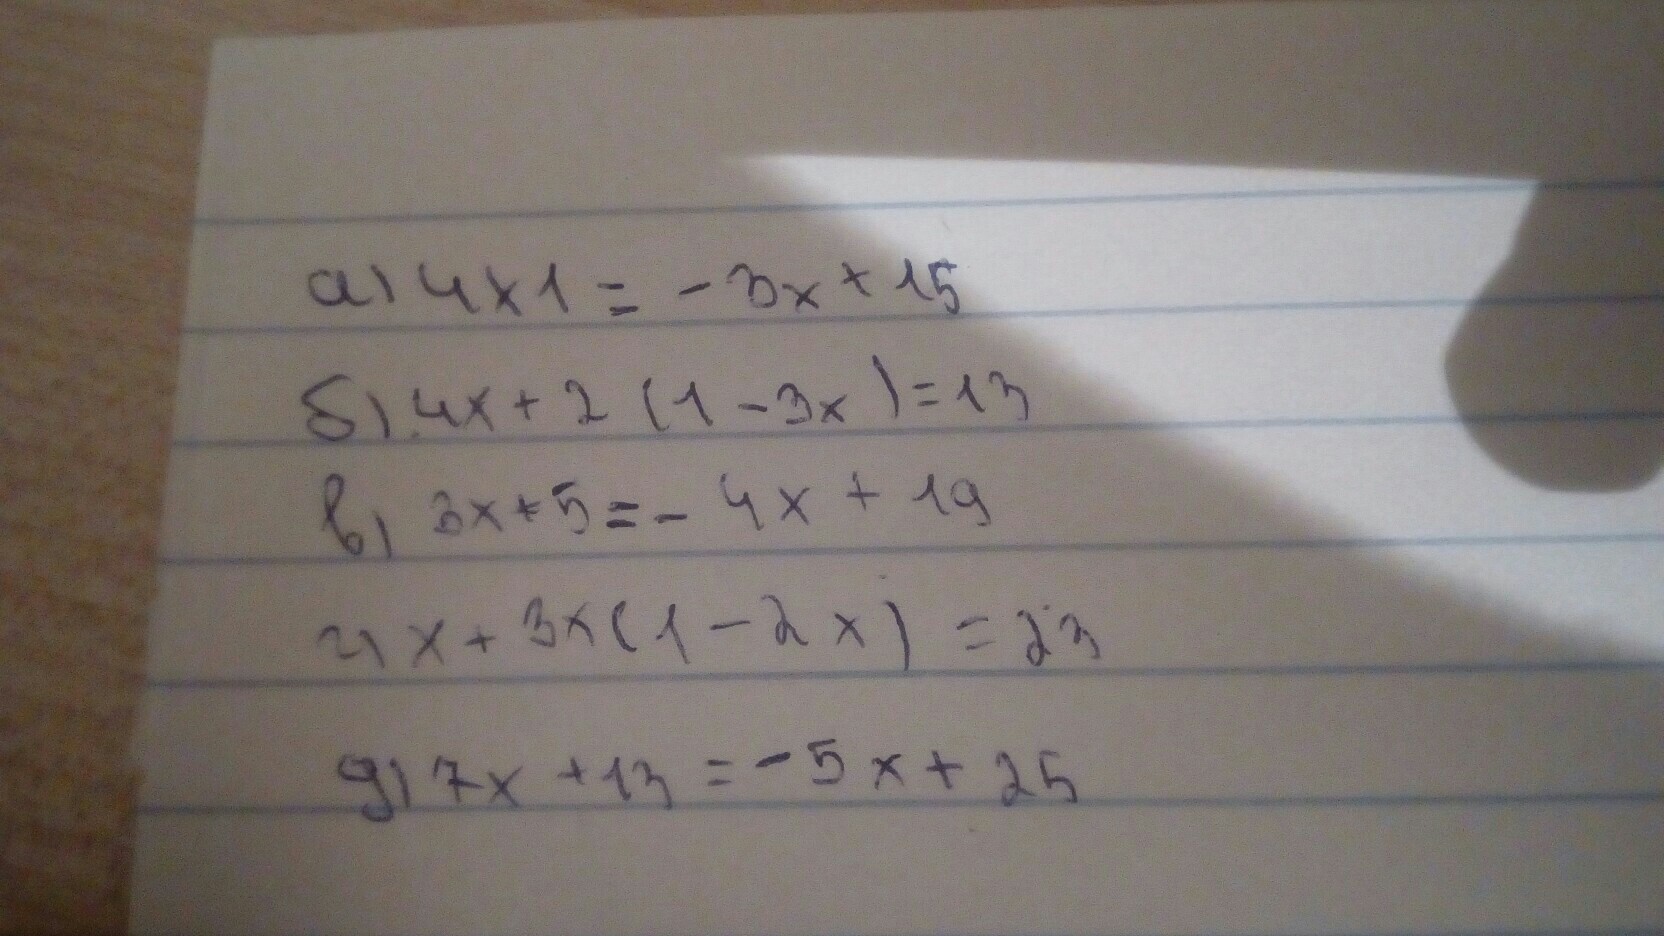 а) 4x1 = - 3x + 15
б) 4x + 2 (1 - 3x) = 13
в) 3x + 5 = - 4x + 19
г) x + 3x(1 - 2x) = 23
д) 7x + 13 = - 5x + 25